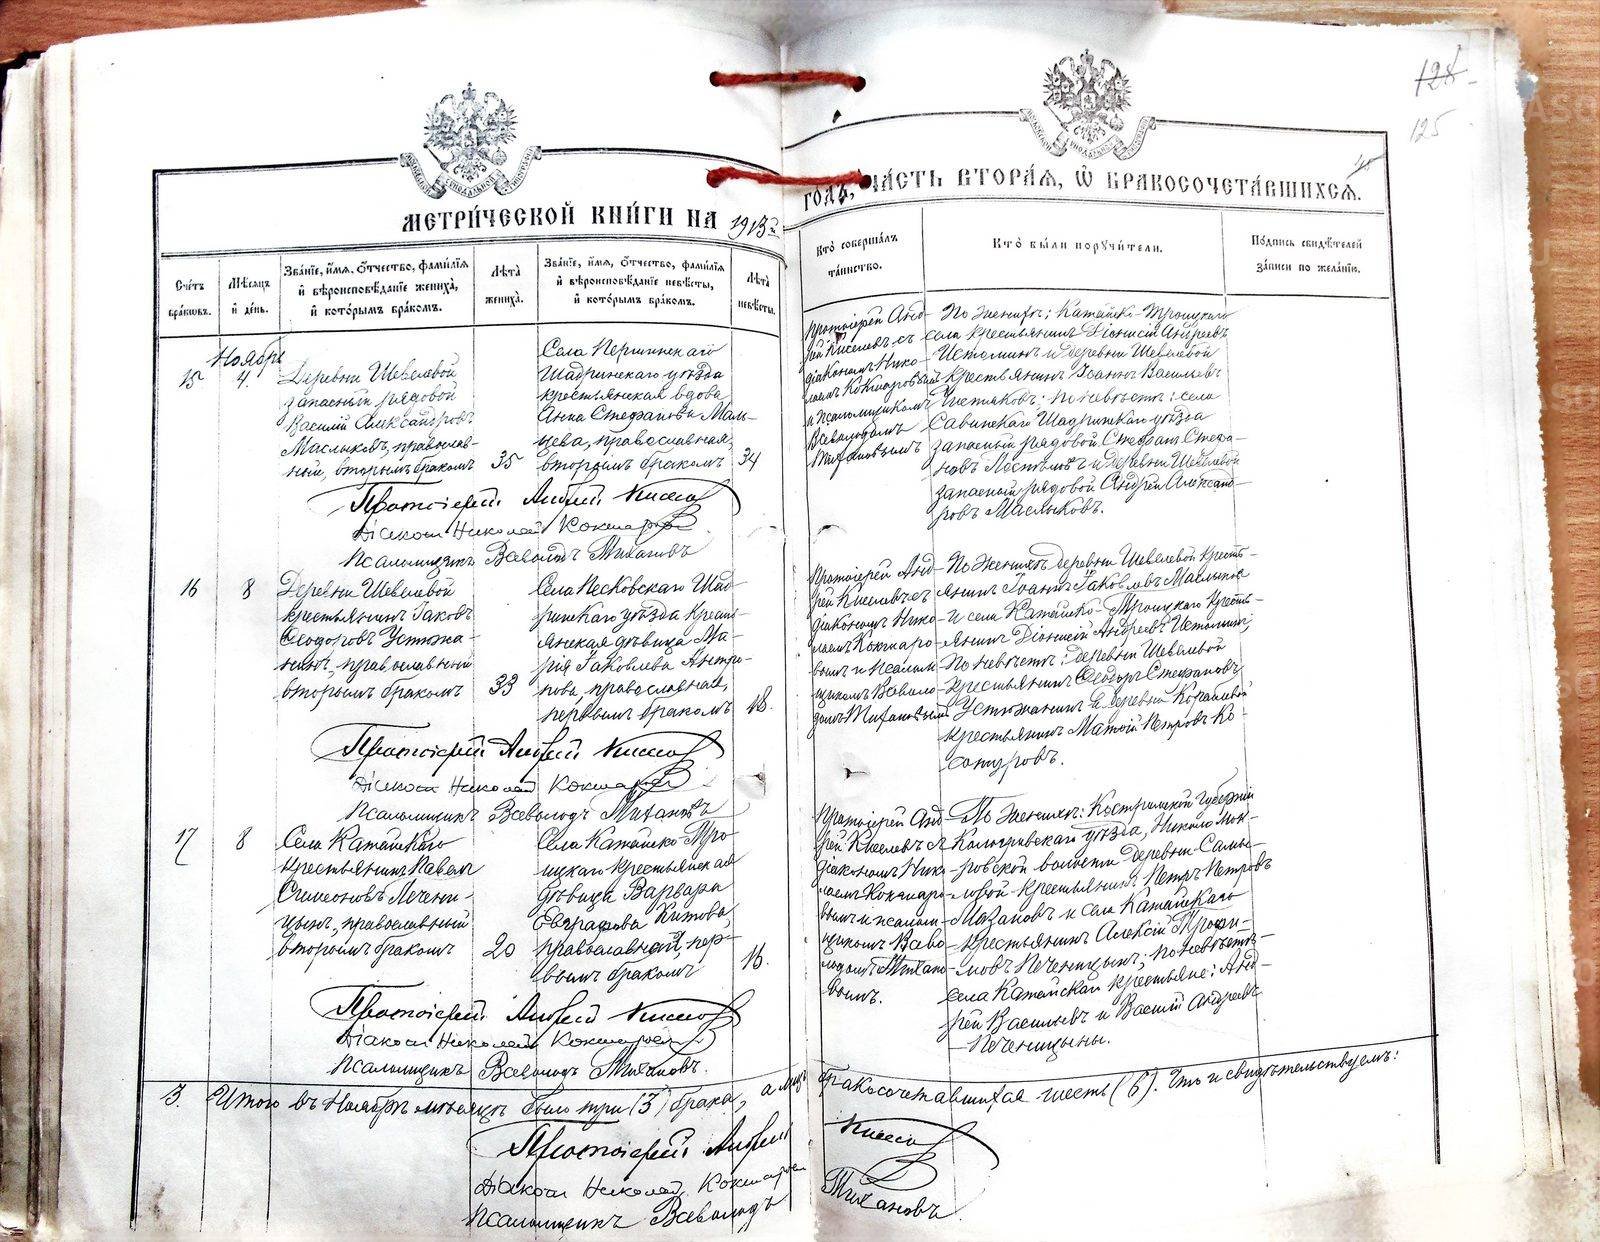 128
125
МЕТРИ́ЧЕСКОЙ КНИ́ГИ НА 1913й ГОДЪ, ЧА́СТЬ ВТОРА́Я, Ѿ БРАКОСОЧЕТА́ВШИХСЯ.
Сче́тъ бра́ковъ.
Мѣ́сяцъ и́ де́нь.
Зва́нїе, и́мя, ѻ́тчество, фами́лїя и́ вѣроисповѣ́данїе жениха̀, и́ кото́рымъ бра́комъ.
Лѣ́та жениха̀.
Зва́нїе, и́мя, ѻ́тчество, фами́лїя и́ вѣроисповѣ́данїе невѣ́сты, и́ кото́рымъ бра́комъ.
Лѣ́та невѣ́сты.
Кто̀ соверша́лъ та́инство.
Кто̀ бы́ли порꙋчи́тели.
По́дпись свидѣ́телей за́писи по жела́нїю.
15
Ноябрь
4.
Деревни Шевелевой
запасный рядовой
Василій Александровъ
Маслыковъ, православ-
ный, вторымъ бракомъ
35
Села Першинскаго
Шадринскаго уѣзда
крестьянская вдова
Анна Стефанова Маль-
цева, православная,
вторымъ бракомъ
34
Протоіерей Анд-
рей Киселевъ съ
діакономъ Нико-
лаемъ Кокшаровымъ
и псаломщикомъ
Всеволодомъ
Тихановымъ
По женихѣ: Катайско-Троицкаго
села крестьянинъ Діонисій Андреевъ
Истоминъ и деревни Шевелевой
крестьянинъ Іоаннъ Васильевъ
Чистяковъ; по невѣстѣ: села
Савинскаго Шадринскаго уѣзда
запасный рядовой Стефанъ Стефа-
новъ Постовъ и деревни Шевелевой
запасный рядовой Андрей Александ-
ровъ Маслыковъ.
Протоіерей Андрей Киселев
Діаконъ Николай Кокшаров
Псаломщикъ Всеволодъ Тихановъ
16
8
Деревни Шевелевой
крестьянинъ Іаковъ
Ѳеодоровъ Устюжа-
нинъ, православный
вторымъ бракомъ
33
Села Песковскаго Шад-
ринскаго уѣзда кресть-
янская дѣвица Ма-
рія Іаковлева Антро-
пова, православная,
первымъ бракомъ
18.
Протоіерей Анд-
рей Киселевъ съ
діакономъ Нико-
лаемъ Кокшаро-
вымъ и псалом-
щикомъ Всеволо-
домъ Тихановымъ
По женихѣ деревни Шевелевой кресть-
янинъ Іоаннъ Іаковлевъ Маслыков
и села Катайско-Троицкаго кресть-
янинъ Діонисій Андреевъ Истоминъ;
по невѣстѣ: деревни Шевелевой
крестьянинъ Ѳеодоръ Стефановъ
Устюжанинъ и деревни Корюковой
крестьянинъ Матѳій Петровъ Ко-
сотуровъ.
Протоіерей Андрей Киселев
Діаконъ Николай Кокшаров
Псаломщикъ Всеволодъ Тихановъ
17
8
Села Катайскаго
крестьянинъ Павелъ
Симеоновъ Печени-
цынъ, православный
вторымъ бракомъ
20
Села Катайско-Тро-
ицкаго крестьянская
дѣвица Варвара
Евграфова Китова,
православной, пер-
вымъ бракомъ
16.
Протоіерей Анд-
рей Киселевъ съ
діакономъ Нико-
лаемъ Кокшаро-
вымъ и псалом-
щикомъ Всево-
лодомъ Тихано-
вымъ.
По женихѣ: Костромской губерніи
Кологривскаго уѣзда, Николо-Мок-
ровской волости деревни
крестьянинъ Петръ Петровъ
Мазановъ и села Катайскаго
крестьянинъ Алексій Трофи-
мовъ Печеницынъ; по невѣстѣ-
села Катайскаго крестьяне: Анд-
рей Васильевъ и Василій Андреевъ
Печеницыны.
Протоіерей Андрей Киселев
Діаконъ Николай Кокшаров
Псаломщикъ Всеволодъ Тихановъ.
3. Итого въ Ноябрѣ мѣсяцѣ было три (3) брака, а лицъ бракосочетавшихся шесть (6). Что и свидѣтельствуемъ:
Протоіерей Андрей Киселев
Діаконъ Николай Кокшаров
Псаломщикъ Всеволодъ Тихановъ.